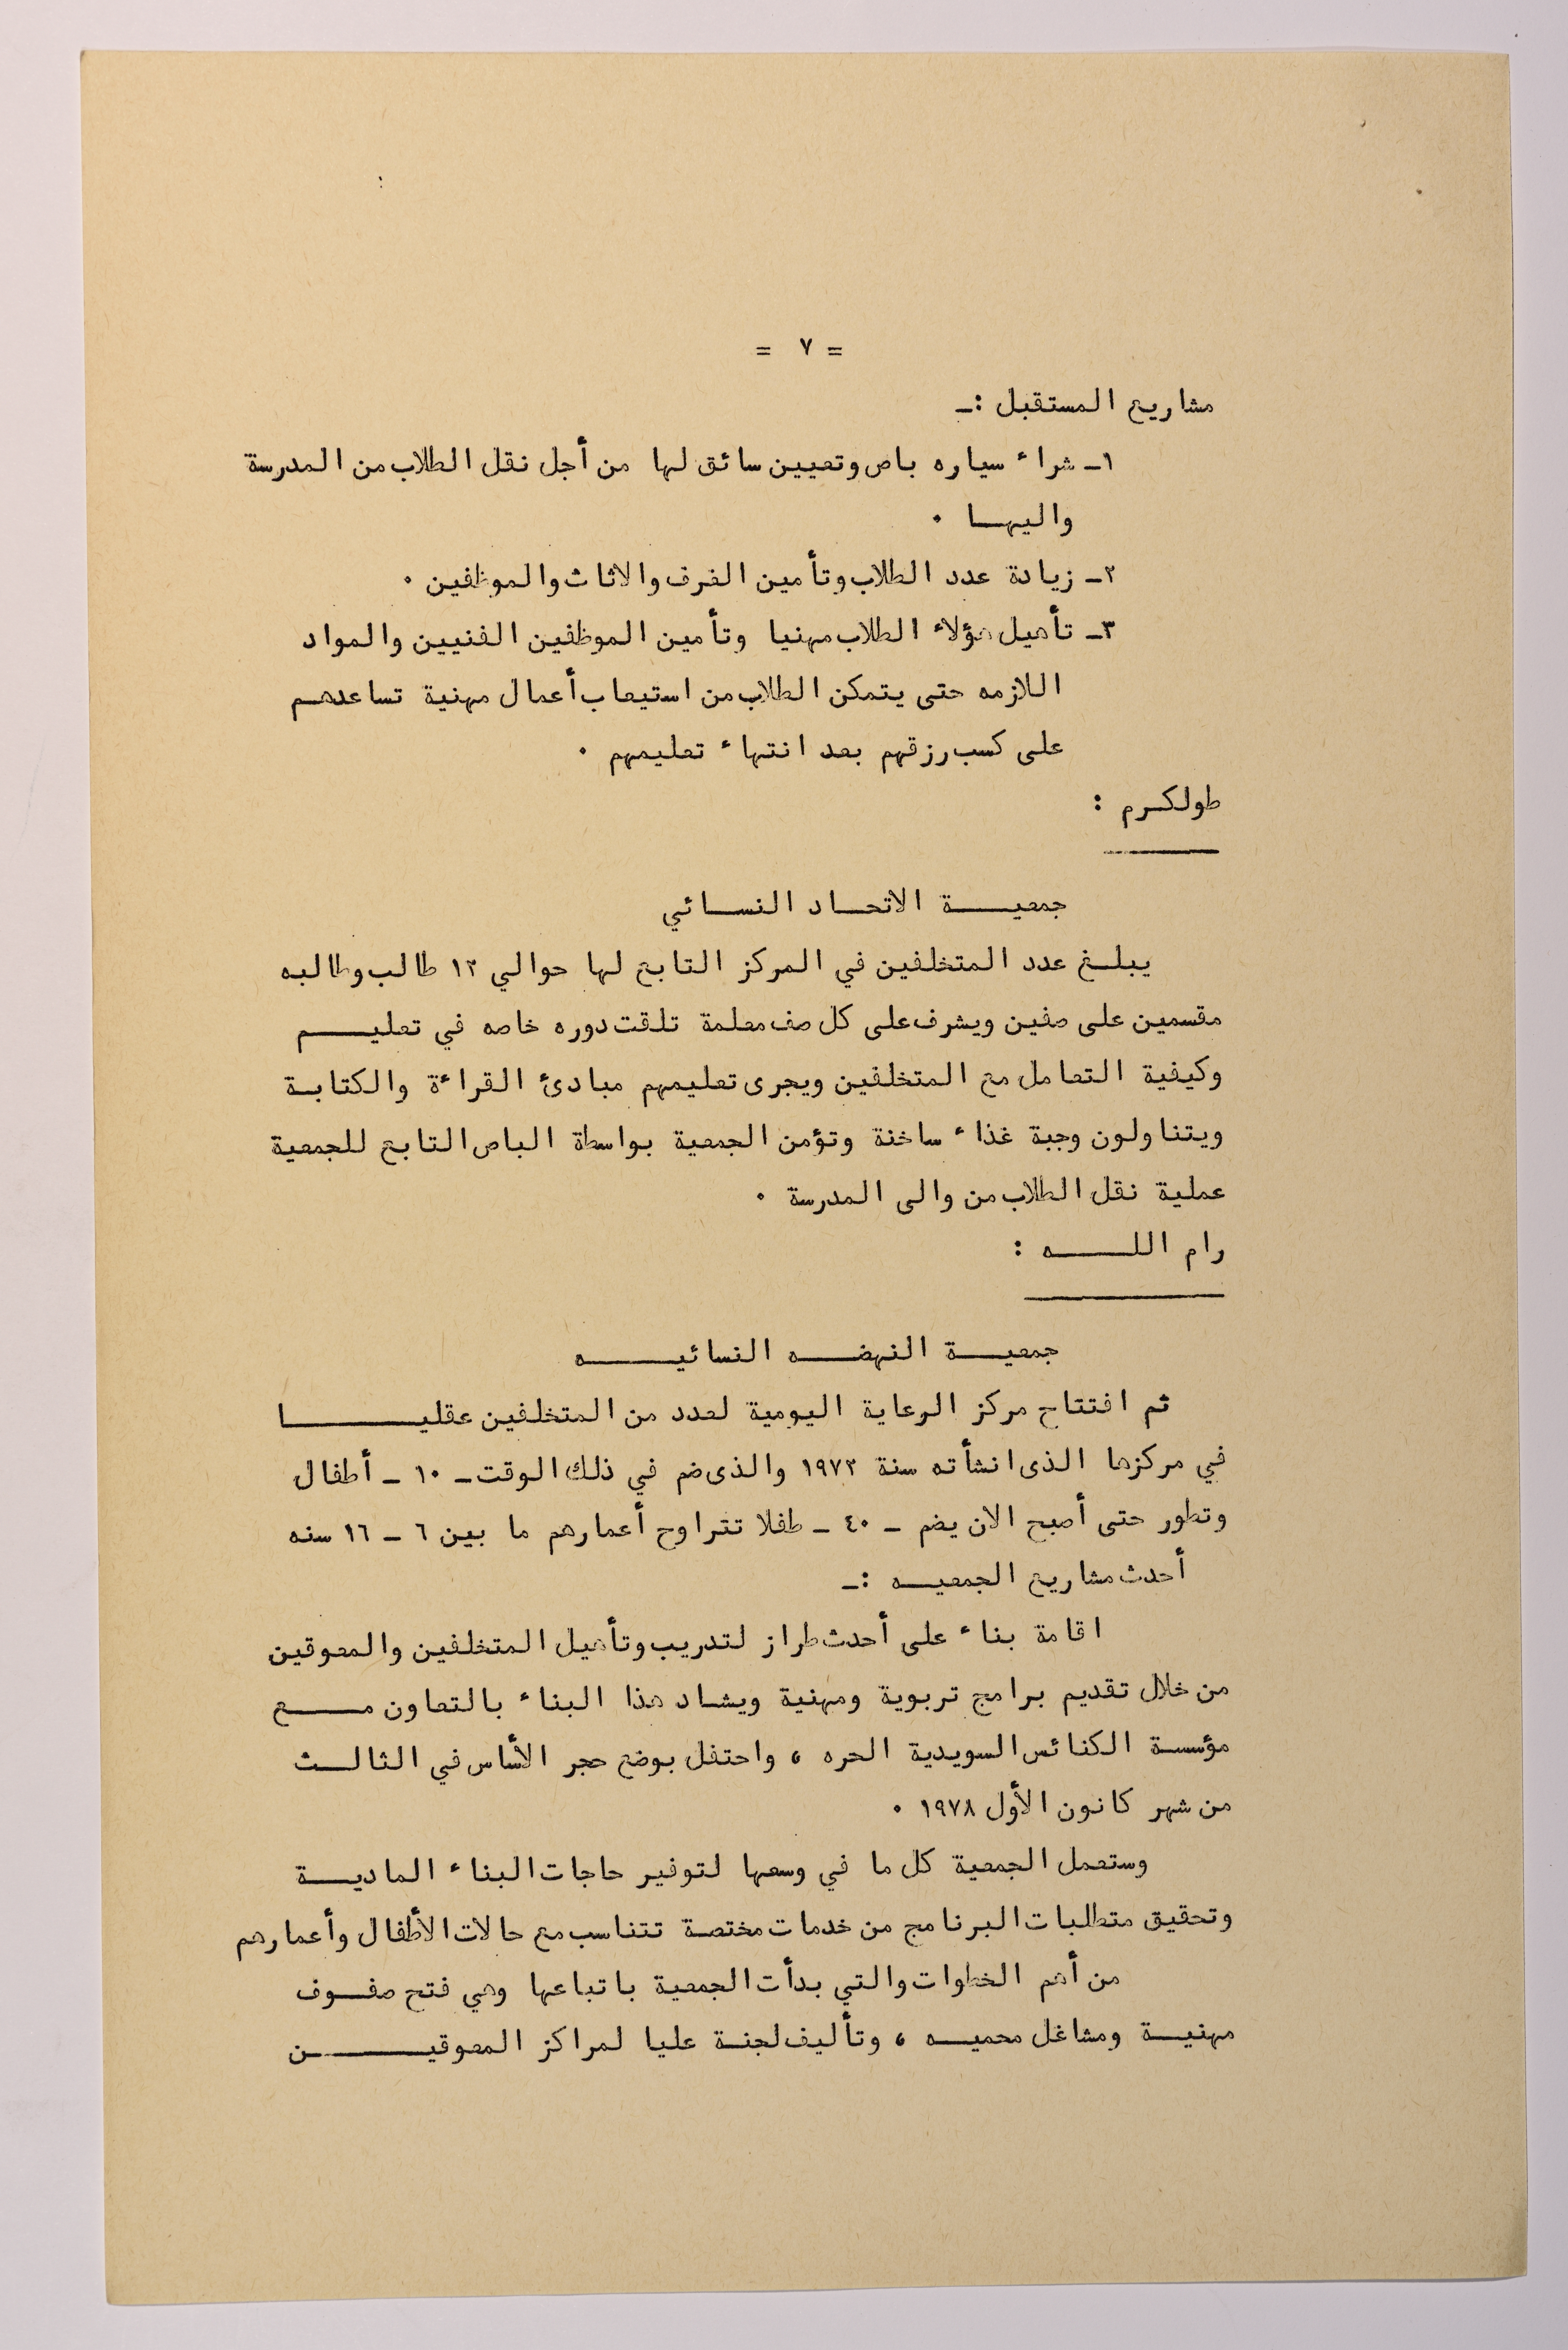 = ٧ =
مشاريع المستقبل :ـ
١ـ شراء سياره باص وتعيين سائق لها من أجل نقل الطلاب من المدرسة
واليها ٠
٢ـ زيادة عدد الطلاب وتأمين الغرف والاثاث والموظفين ٠
٣ـ تأهيل هؤلاء الطلاب مهنيا وتأمين الموظفين الفنيين والمواد
اللازمه حتى يتمكن الطلاب من استيعاب أعمال مهنية تساعدهم
على كسب رزقهم بعد انتهاء تعليمهم ٠
طولكرم :
جمعيـــة الاتحـاد النسـائي
يبلـغ عدد المتخلفين في المركز التابع لها حوالي ١٢ طالب وطالبه
مقسمين على صفين ويشرف على كل صف معلمة تلقت دوره خاصه في تعليــم
وكيفية التعامل مع المتخلفين ويجرى تعليمهم مبادئ القراءة والكتابـة
ويتناولون وجبة غذاء ساخنة وتؤمن الجمعية بواسطة الباص التابع للجمعية
عملية نقل الطلاب من والى المدرسة ٠
رام اللــــه :
جمعيـــة النهضــه النسائيــــه
ثم افتتاح مركز الرعاية اليومية لعدد من المتخلفين عقليــــا
في مركزها الذى انشأته سنة ١٩٧٢ والذى ضم في ذلك الوقت ـ ١٠ ـ أطفال
وتطور حتى أصبح الان يضم ـ ٤٠ ـ طفلا تتراوح أعمارهم ما بين ٦ ـ ١٦ سنه
أحدث مشاريع الجمعيـه :ـ
اقامة بناء على أحدث طراز لتدريب وتأهيل المتخلفين والمعوقين
من خلال تقديم برامج تربوية ومهنية ويشاد هذا البناء بالتعاون مـــع
مؤسسـة الكنائس السويدية الحره ، واحتفل بوضع حجر الأساس في الثالـث
من شهر كانون الأول ١٩٧٨ ٠
وستعمل الجمعية كل ما في وسعها لتوفير حاجات البناء الماديـــة
وتحقيق متطلبات البرنامج من خدمات مختصة تتناسب مع حالات الأطفال وأعمارهم
من أهم الخطوات والتي بدأت الجمعية باتباعها وهي فتح صفـوف
مهنيـــة ومشاغل محميــه ، وتأليف لجنـة عليا لمراكز المعوقيــــن